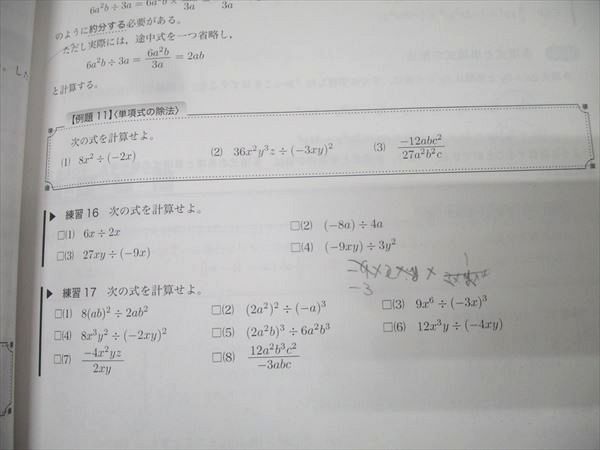 のように約分する必要がある。
ただし実際には，途中式を一つ省略し，
6a²b ÷ 3a = 6a²b/3a = 2ab
と計算する。
【例題 11】〈単項式の除法〉
次の式を計算せよ。
(1) 8x² ÷ (−2x) (2) 36x²y³z ÷ (−3xy)² (3) −12abc²/27a²b²c
▶ 練習 16 次の式を計算せよ。
□(1) 6x ÷ 2x □(2) (−8a) ÷ 4a
□(3) 27xy ÷ (−9x) □(4) (−9xy) ÷ 3y²
−3
▶ 練習 17 次の式を計算せよ。
□(1) 8(ab)² ÷ 2ab² □(2) (2a²)² ÷ (−a)³ □(3) 9x⁶ ÷ (−3x)³
□(4) 8x³y² ÷ (−2xy)² □(5) (2a²b)³ ÷ 6a²b³ □(6) 12x³y ÷ (−4xy)
□(7) −4x²yz/2xy □(8) 12a²b³c²/−3abc